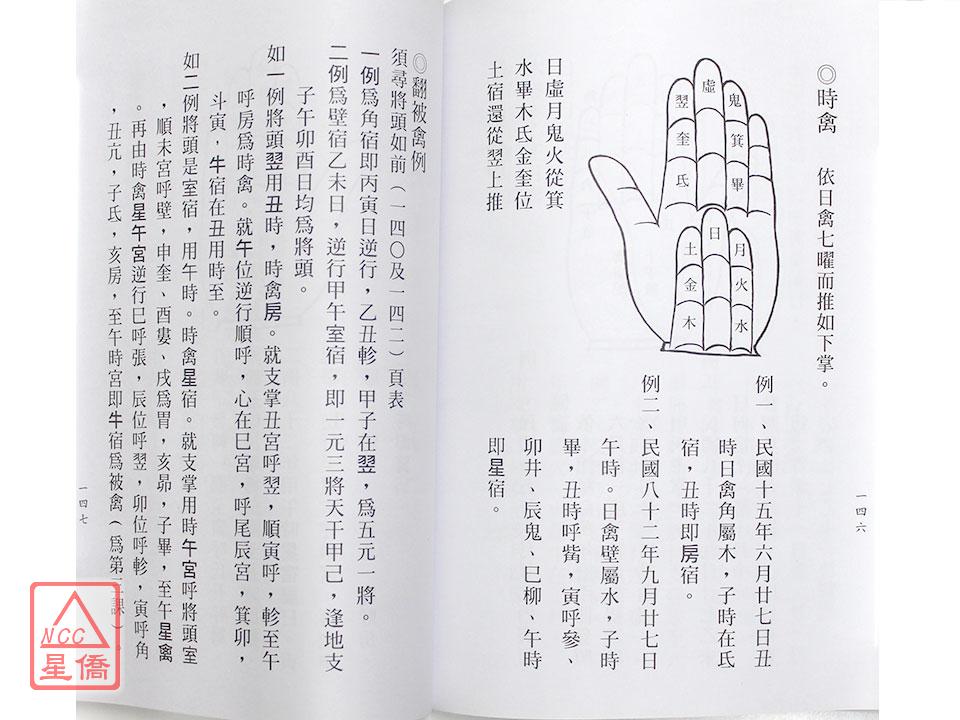 ◎時禽　依日禽七曜而推如下掌。
虛
鬼
翌
箕
奎
畢
氐
日
月
土
火
金
水
木
日虛月鬼火從箕
水畢木氐金奎位
土宿還從翌上推
例一、民國十五年六月廿七日丑
時日禽角屬木，子時在氐
宿，丑時即房宿。
例二、民國八十二年九月廿七日
午時。日禽壁屬水，子時
畢，丑時呼觜，寅呼參、
卯井、辰鬼、巳柳、午時
即星宿。
一四六
◎翻被禽例
須尋將頭如前（一四〇及一四二）頁表
一例爲角宿即丙寅日逆行，乙丑軫，甲子在翌，爲五元一將。
二例爲壁宿乙未日，逆行甲午室宿，即一元三將天干甲己，逢地支
子午卯酉日均爲將頭。
如一例將頭翌用丑時，時禽房。就支掌丑宮呼翌，順寅呼，軫至午
呼房爲時禽。就午位逆行順呼，心在巳宮，呼尾辰宮，箕卯，
斗寅，牛宿在丑用時至。
如二例將頭是室宿，用午時。時禽星宿。就支掌用時午宮呼將頭室
，順未宮呼壁，申奎、酉婁、戌爲胃，亥昴，子畢，至午星禽
。再由時禽星午宮逆行巳呼張，辰位呼翌，卯位呼軫，寅呼角
，丑亢，子氐，亥房，至午時宮即牛宿爲被禽（爲第三課）。
一四七
NCC
星僑